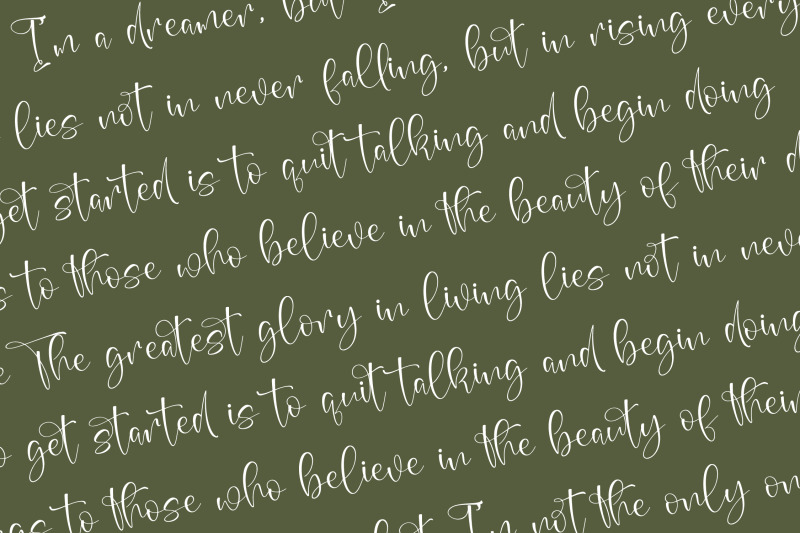 I'm a dreamer, but
lies not in never falling, but in rising every
get started is to quit talking and begin doing
to those who believe in the beauty of their
The greatest glory in living lies not in neve
get started is to quit talking and begin doing
to those who believe in the beauty of their
I'm not the only on